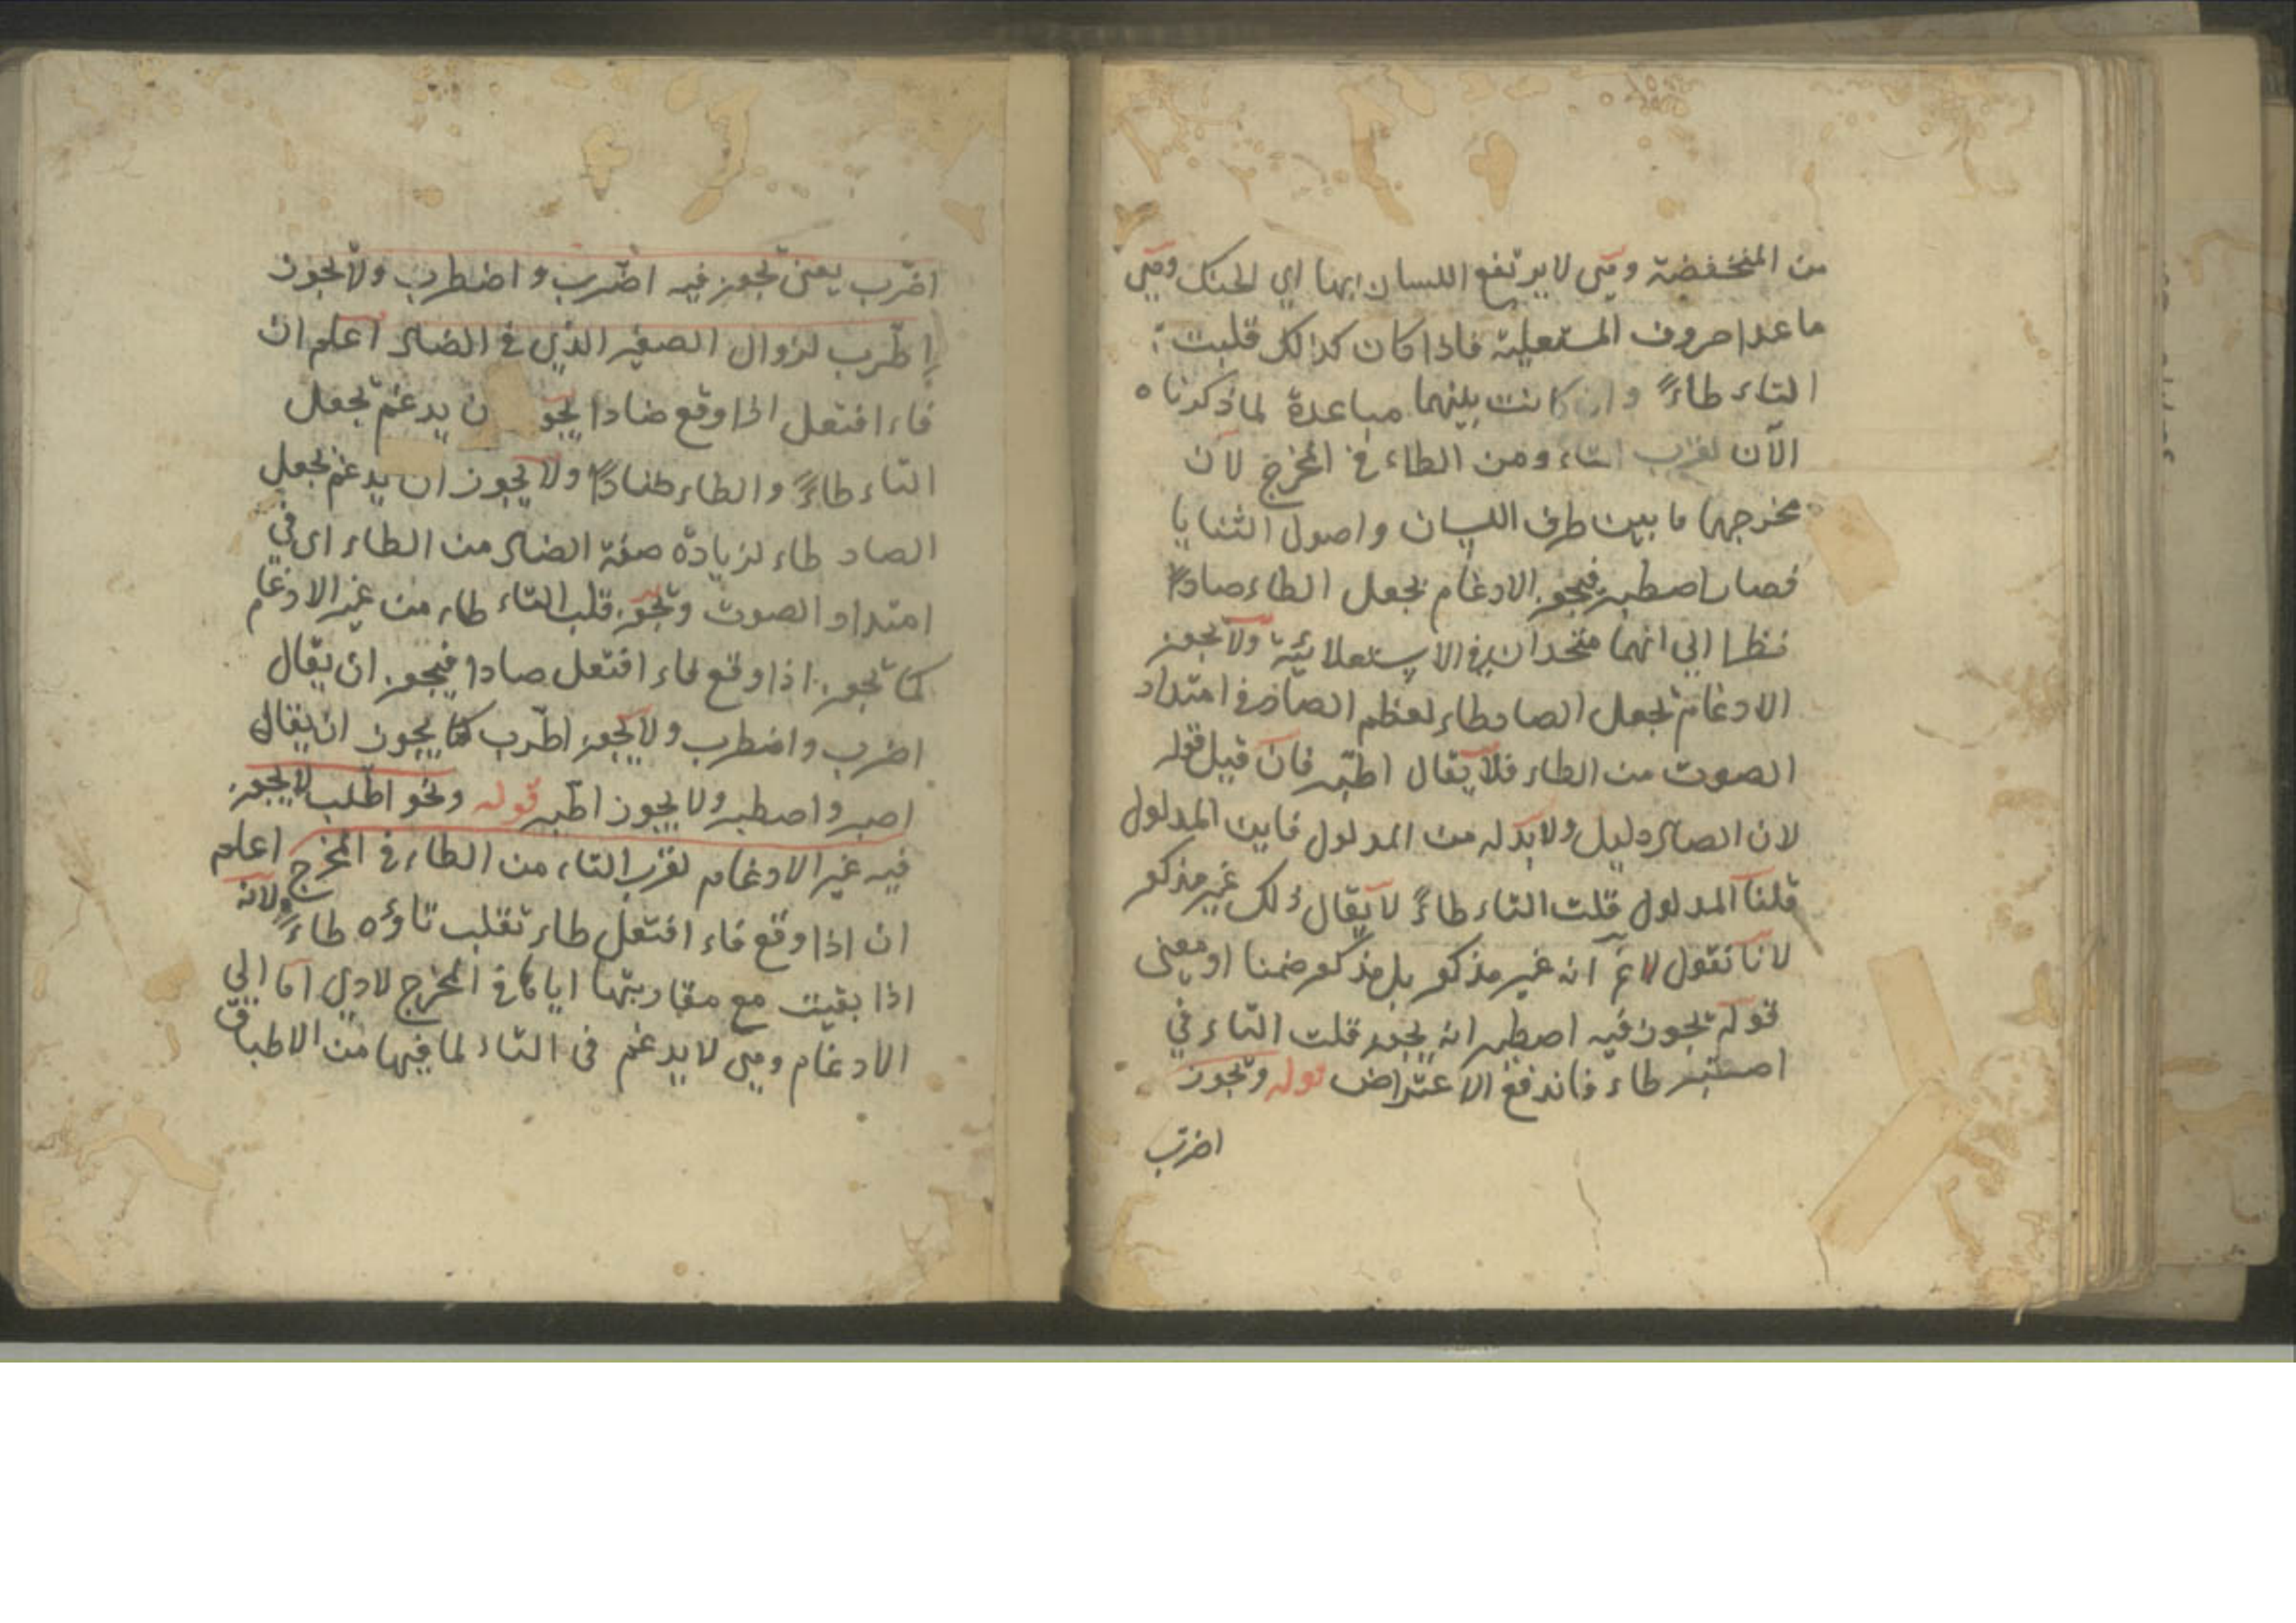 من المنخفضة وهي لا يرتفع اللسان بها اي الحنك وهي
ما عدا حروف المستعلية فاذا كان كذالك قلبت
التاء طاءً وان كانت بينهما مباعدة لما ذكرنا
الآن لقرب التاء ومن الطاء في المخرج لان
مخرجهما ما بين طرف اللسان واصول الثنايا
فصار اصطبر فيجوز الادغام بجعل الطاء صادًا
نظرا الي انهما متحدان في الاستعلائية ولا يجوز
الادغام بجعل الصاد طاء لعظم الصاد في امتداد
الصوت من الطاء فلا يقال اطبر فان قيل قوله
لان الصاد دليل ولا بد له من المدلول فاين المدلول
قلنا المدلول قلت التاء طاءً لا يقال ذلك غير مذكور
لانا نقول لانم انه غير مذكور بل مذكور ضمنا او معنى
قوله يجوز فيه اصطبر انه يجوز قلت التاء في
اصتبر طاء فاندفع الاعتراض قوله ويجوز
اضرب
اضّرب يعنى يجوز فيه اضّرب واضطرب ولا يجوز
اطّرب لزوال الصفير الذي في الضاد اعلم ان
فاء افتعل اذا وقع ضادا يجو ن يدغم بجعل
التاء طاءً والطاء ضادًا ولا يجوز ان يدغم بجعل
الصاد طاء لزيادة صفة الضاد من الطاء اى في
امتداد الصوت ويجوز قلب التاء طاء من غير الادغام
كما يجوز اذا وقع فاء افتعل صادا فيجوز ان يقال
اضرب واضطرب ولا يجوز اطّرب كما يجوز ان يقال
اصبر واصطبر ولا يجوز اطّبر قوله ونحو اطّلب لا يجوز
فيه غير الادغام لقرب التاء من الطاء في المخرج اعلم
ان اذا وقع فاء افتعل طاء تقلب تاؤه طاءً ولانه
اذا بقيت مع مقاربتها اياها في المخرج لادي اما الي
الادغام وهي لا يدغم فى التاء لما فيها من الاطباق